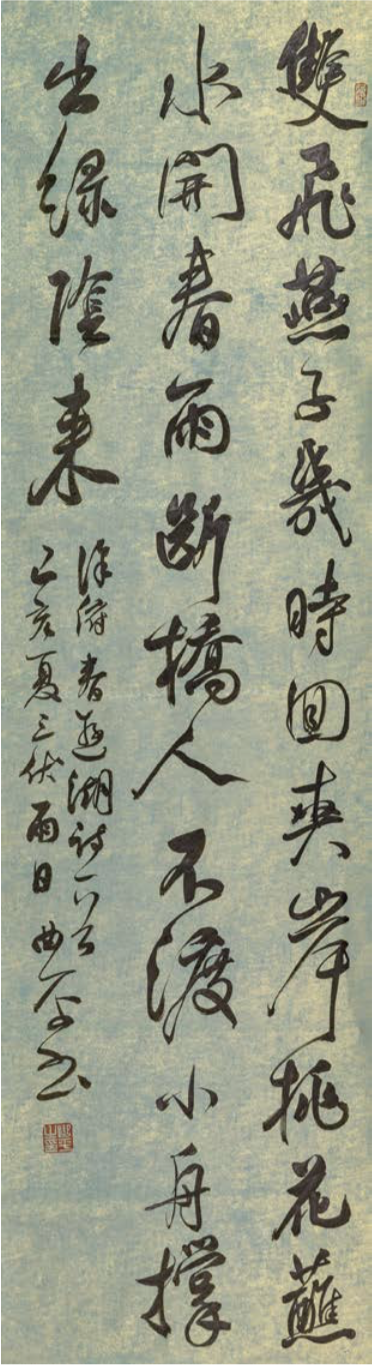 雙飛燕子幾時回夾岸桃花蘸
水開春雨斷橋人不渡小舟撐
出綠陰来
徐俯春遊湖詩一首
己亥夏三伏雨日曲書